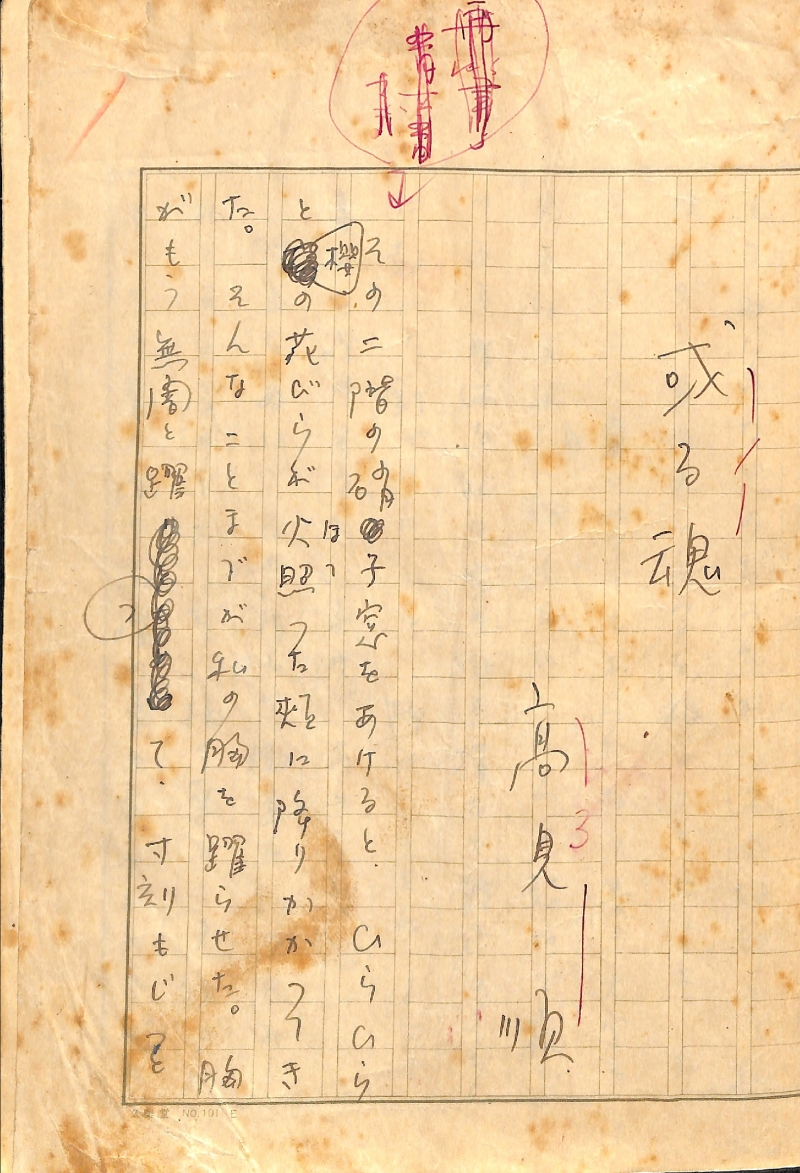 或る魂
高見順
その二階の硝子窓をあけると、ひらひら
と櫻の花びらが火照った頬に降りかかってき
ほて
た。そんなことまでが私の胸を躍らせた。胸
がもう無闇と躍って、寸刻もじっと
NO.101 E